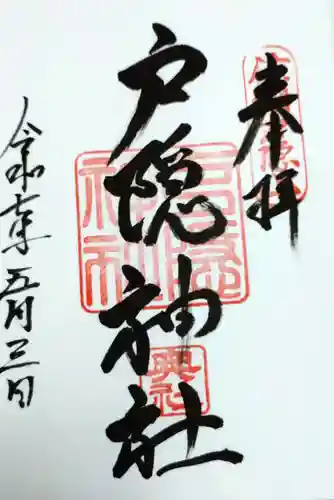 奉拝
戸隠神社
令和元年五月三日
戸隠神社
奥社